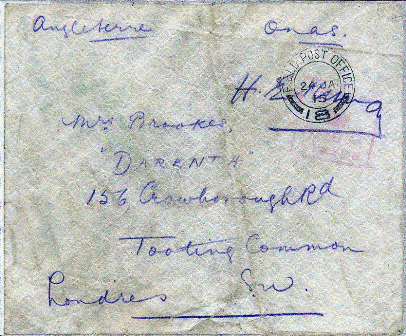 Angleterre O.n.a.s.
FIELD POST OFFICE
24 JA
15
18
H.
Mrs Brookes,
"DARENTH"
156, Crowborough Rd
Tooting Common
Londres S.W.